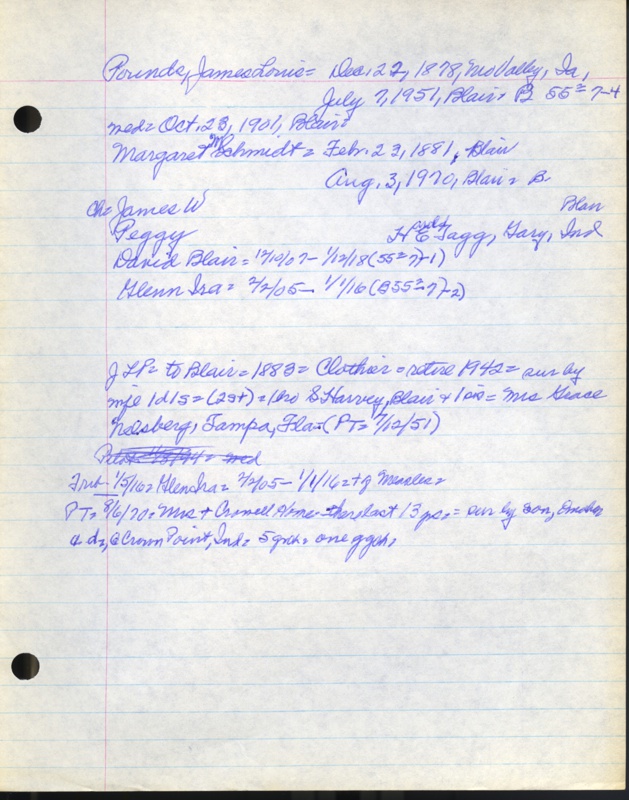 Pounds, James Louis = Dec. 22, 1878, Mo Valley, Ia,
July 7, 1951, Blair = B 55= 7-4
med = Oct. 23, 1901, Blair =
Margaret M Schmidt = Feb. 23, 1881, Blair
Aug. 3, 1970, Blair = B.
Ch = James W Blair
Peggy H E Tagg, Gary, Ind
David Blair = 12/10/07 - 1/12/18 (55= 7-1)
Glenn Ira = 2/2/05 - 1/1/16 (B55= 7-2)
J L P = to Blair = 1883 = Clothier = retire 1942 = sur by
wife 1d 1s = (2s+) = bro S Harvey, Blair + 1 sis = Mrs Grace
Tampa, Fla = (PT = 7/12/51)
Trib 1/5/16 = Glen Ira = 2/2/05 - 1/1/16 = + of Measles =
PT = 8/6/70 = Mrs + Crowell Home the last 13 yrs = sur by son, Omaha
& d, @ Crown Point, Ind = 5 gch = one ggch =